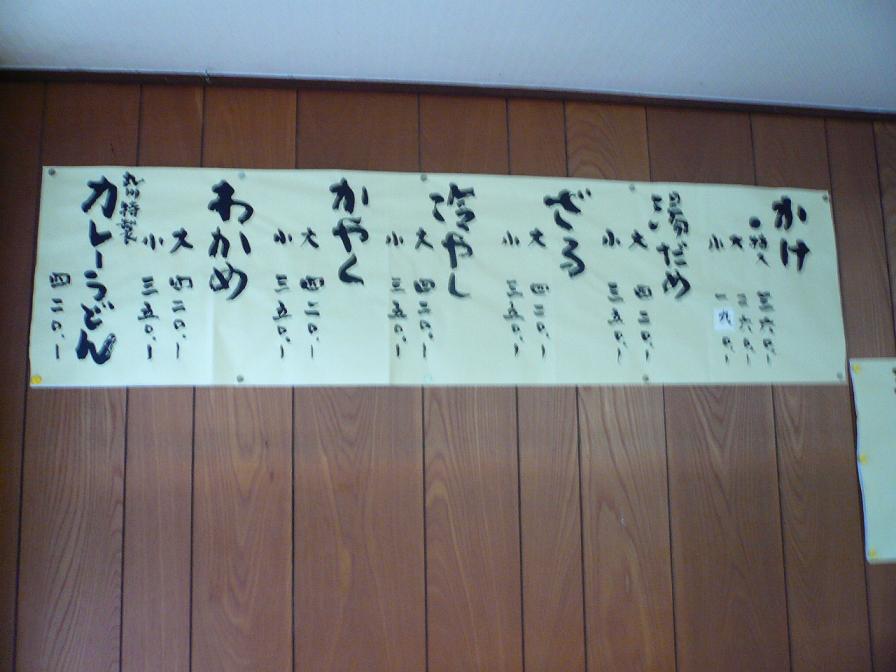 かけ
特大 三六〇、ー
大 二六〇、ー
小 一九〇、ー
湯だめ
大 四二〇、ー
小 三五〇、ー
ざる
大 四二〇、ー
小 三五〇、ー
冷やし
大 四二〇、ー
小 三五〇、ー
かやく
大 四二〇、ー
小 三五〇、ー
わかめ
大 四二〇、ー
小 三五〇、ー
特製
カレーうどん
四二〇、ー